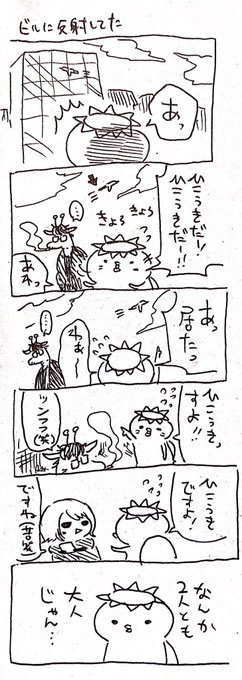 ビルに反射してた
あっ
ひこうきだー!
ひこうきだー!!
きょろ
きょろ
…
あれっ
あっ
居たっ
わぁ〜
…
ひこうき
すよ!!
ツンフフ(笑)
ひこうき
ですよ!
ですね(苦笑)
なんか
2人とも
大人
じゃん…